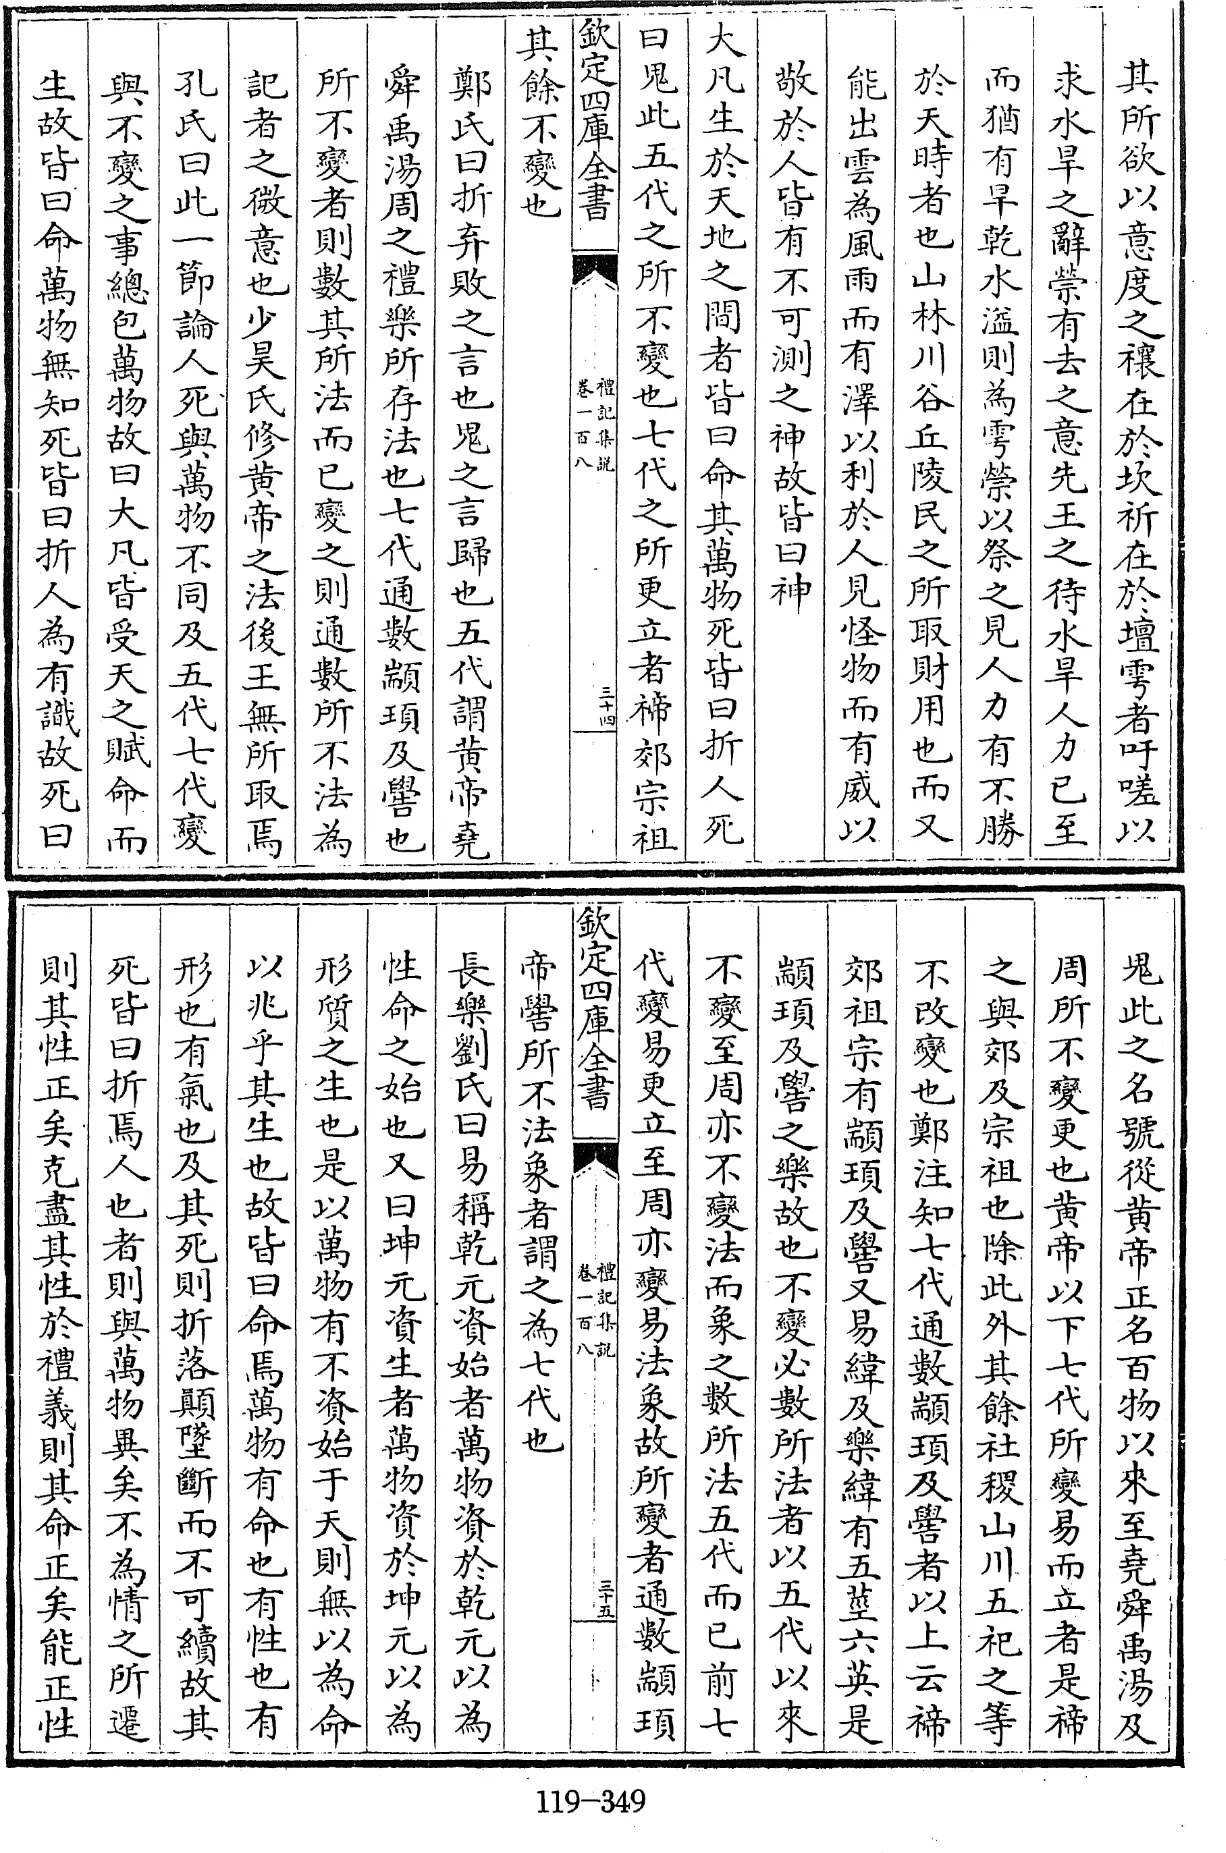 其所欲以意度之禳在於坎祈在於壇雩者吁嗟以
求水旱之辭禜有去之意先王之待水旱人力已至
而猶有旱乾水溢則為雩禜以祭之見人力有不勝
於天時者也山林川谷丘陵民之所取財用也而又
能出雲為風雨而有澤以利於人見怪物而有威以
敬於人皆有不可測之神故皆曰神
大凡生於天地之間者皆曰命其萬物死皆曰折人死
曰鬼此五代之所不變也七代之所更立者禘郊宗祖
欽定四庫全書
禮記集説
卷一百八
三十四
其餘不變也
鄭氏曰折弃敗之言也鬼之言歸也五代謂黄帝堯
舜禹湯周之禮樂所存法也七代通數顓頊及嚳也
所不變者則數其所法而已變之則通數所不法為
記者之微意也少昊氏修黄帝之法後王無所取焉
孔氏曰此一節論人死與萬物不同及五代七代變
與不變之事總包萬物故曰大凡皆受天之賦命而
生故皆曰命萬物無知死皆曰折人為有識故死曰
鬼此之名號從黄帝正名百物以來至堯舜禹湯及
周所不變更也黄帝以下七代所變易而立者是禘
之與郊及宗祖也除此外其餘社稷山川五祀之等
不改變也鄭注知七代通數顓頊及嚳者以上云禘
郊祖宗有顓頊及嚳又易緯及樂緯有五莖六英是
顓頊及嚳之樂故也不變必數所法者以五代以來
不變至周亦不變法而象之數所法五代而已前七
代變易更立至周亦變易法象故所變者通數顓頊
欽定四庫全書
禮記集説
卷一百八
三十五
帝嚳所不法象者謂之為七代也
長樂劉氏曰易稱乾元資始者萬物資於乾元以為
性命之始也又曰坤元資生者萬物資於坤元以為
形質之生也是以萬物有不資始于天則無以為命
以兆乎其生也故皆曰命焉萬物有命也有性也有
形也有氣也及其死則折落顛墜斷而不可續故其
死皆曰折焉人也者則與萬物異矣不為情之所遷
則其性正矣克盡其性於禮義則其命正矣能正性
119-349